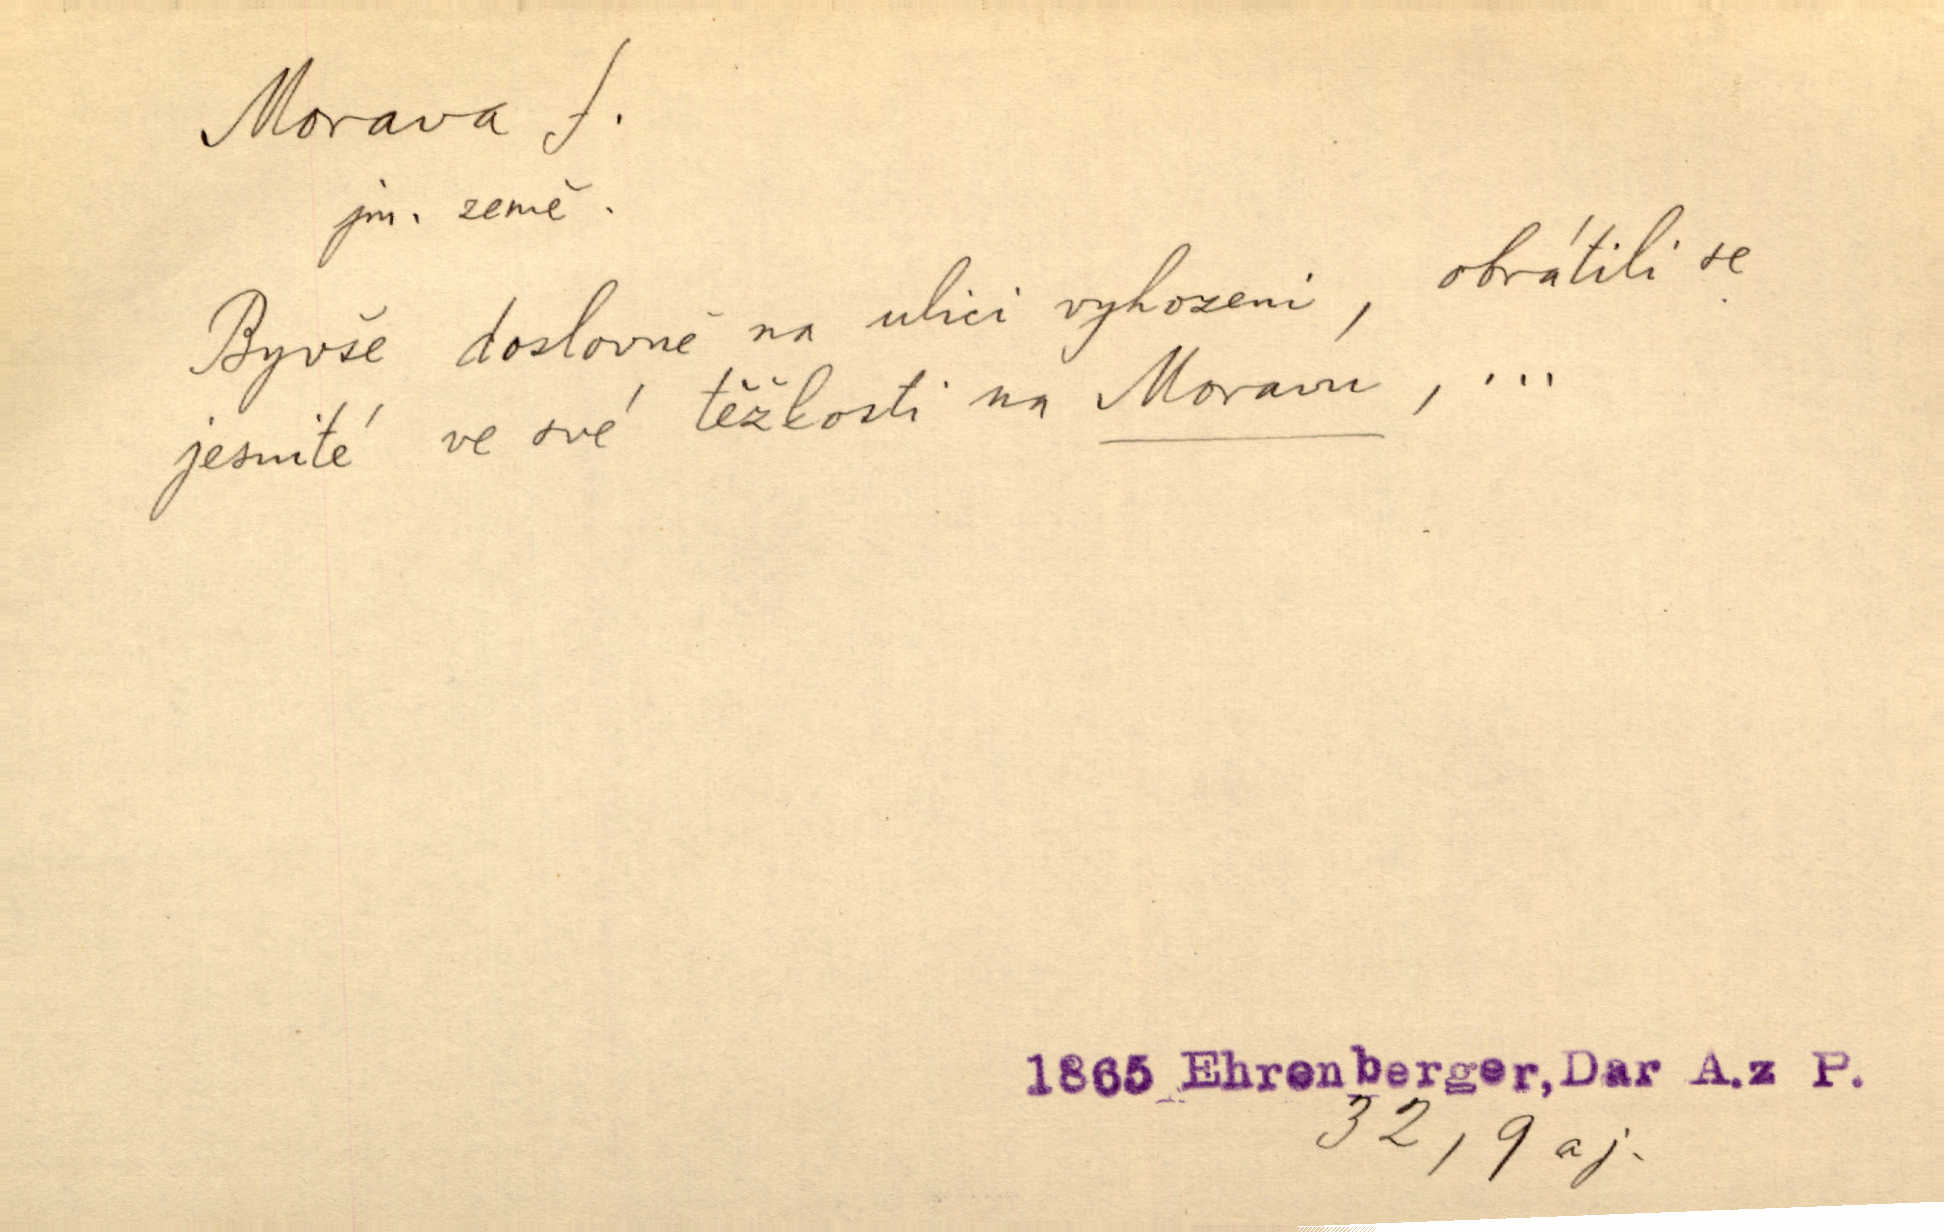 Morava f.
jm. země.
Byvše doslovně na ulici vyhozeni, obrátili se
jesuité ve své těžkosti na Moravu, ...
1865 Ehrenberger, Dar A.z P.
32, 9 aj.